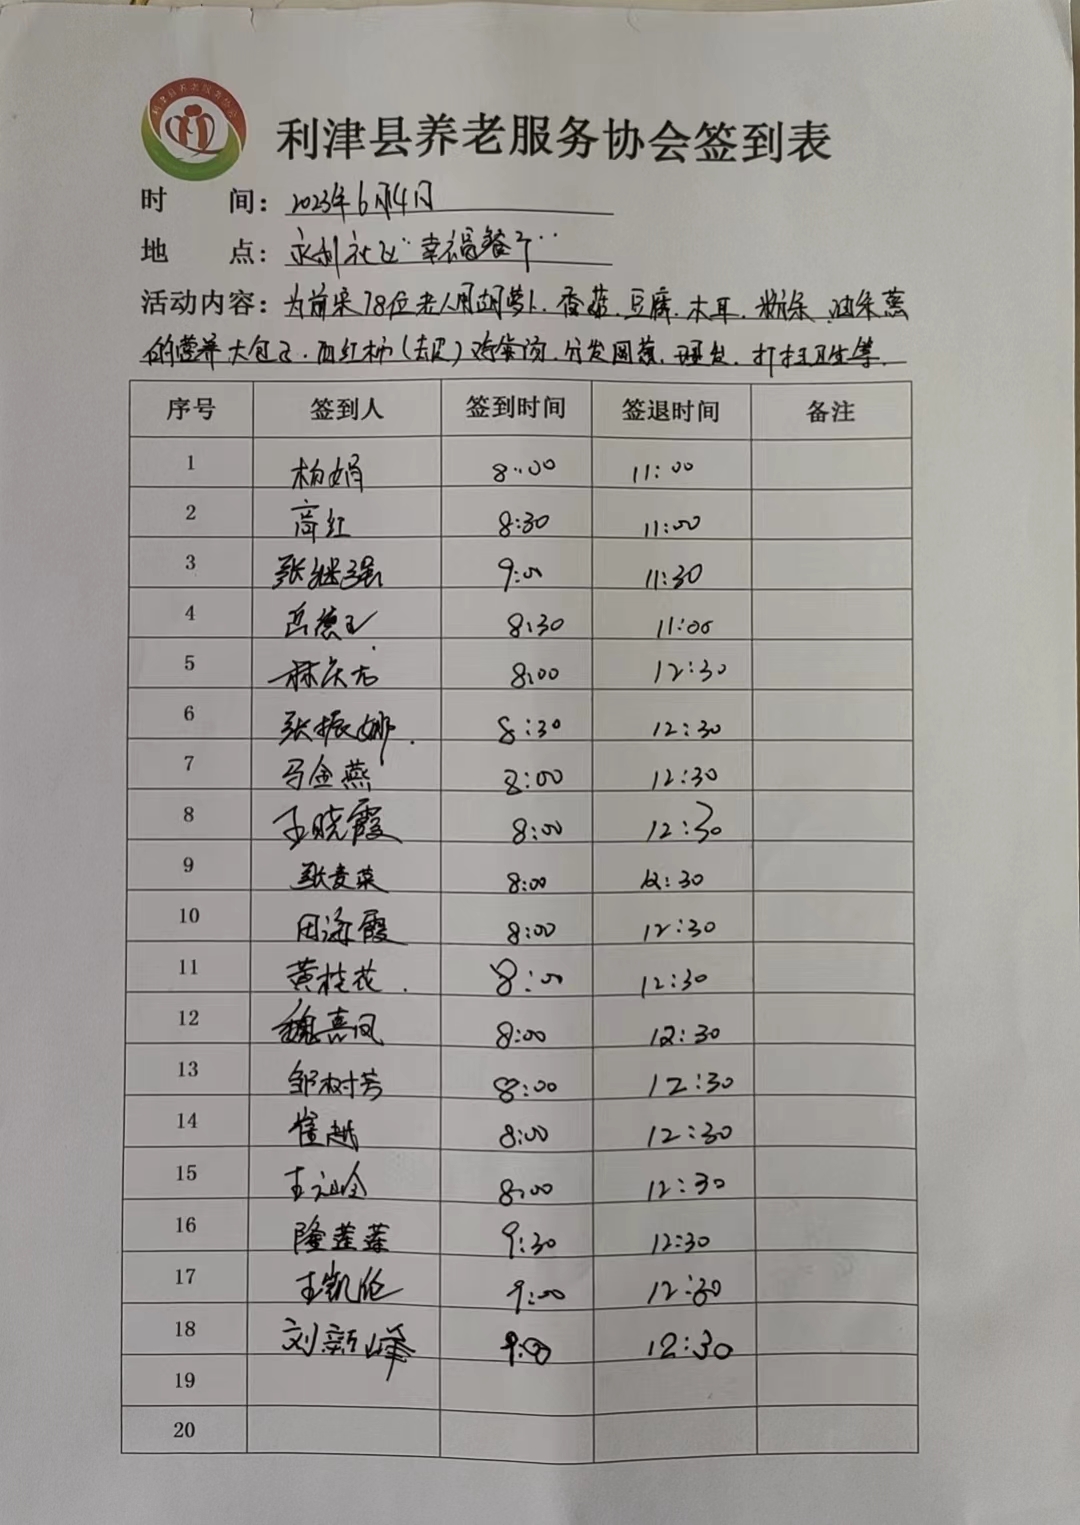 利津县养老服务协会签到表
时 间: 2023年6月14日
地 点: 永利社区"幸福餐厅"
活动内容: 为前来78位老人用胡萝卜、香菇、豆腐、木耳、粉条、油朱蒸
的营养大包子、西红柿(去皮)鸡蛋汤、分发圆葱、理发、打扫卫生等
序号 签到人 签到时间 签退时间 备注
1 柏娟 8:00 11:00
2 高红 8:30 11:00
3 张继强 9:00 11:30
4 岳德玉 8:30 11:00
5 林庆 8:00 12:30
6 张振娜 8:30 12:30
7 马金燕 8:00 12:30
8 王晓霞 8:00 12:30
9 张麦菜 8:00 12:30
10 田海霞 8:00 12:30
11 黄桂花 8:00 12:30
12 魏喜凤 8:00 12:30
13 邹树芳 8:00 12:30
14 崔越 8:00 12:30
15 王 8:00 12:30
16 隆莲莲 9:30 12:30
17 王凯伦 9:00 12:30
18 刘新峰 9:00 12:30
19
20